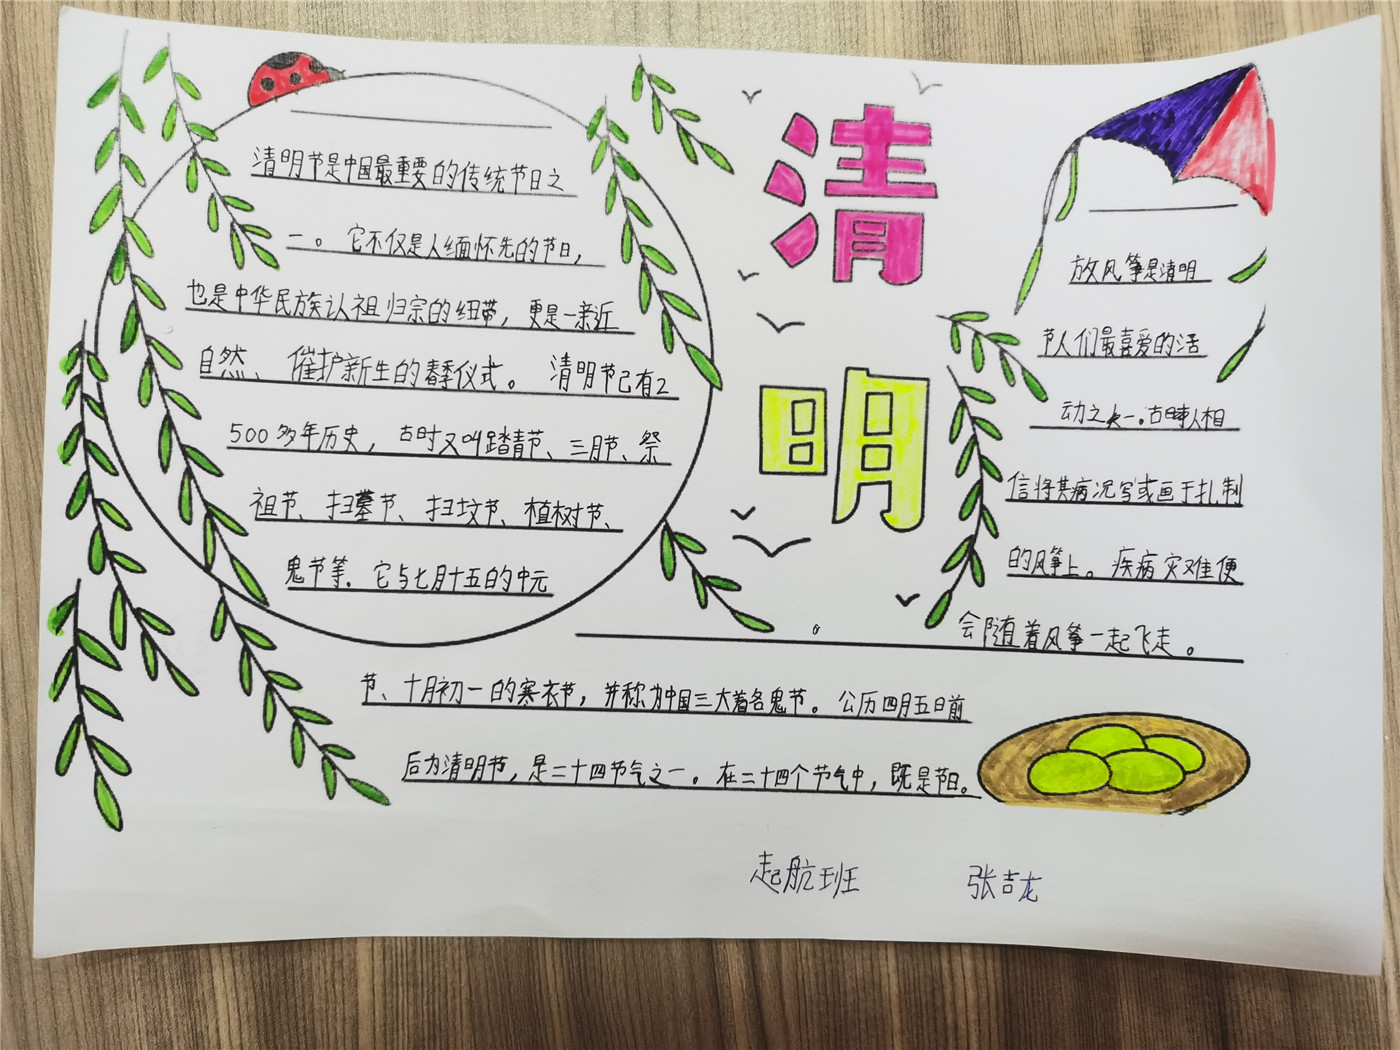 清明节是中国最重要的传统节日之
一。它不仅是人缅怀先的节日，
也是中华民族认祖归宗的纽带，更是一亲近
自然、催护新生的春季仪式。清明节已有2
500多年历史，古时又叫踏青节、三月节、祭
祖节、扫墓节、扫坟节、植树节、
鬼节等．它与七月十五的中元
节、十月初一的寒衣节，并称为中国三大着名鬼节。公历四月五日前
后为清明节，是二十四节气之一。在二十四个节气中，既是节日。
清
明
放风筝是清明
节人们最喜爱的活
动之一。古时人相
信将其病况写或画于扎制
的风筝上。疾病灾难便
会随着风筝一起飞走。
起航班 张吉龙